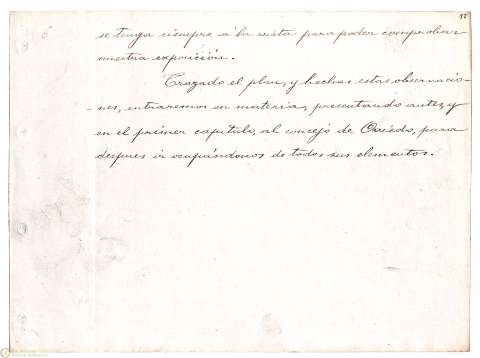 12
se tenga siempre á la vista para poder comprobar
nuestra exposición.
Trazado el plan, y hechas estas observacio-
-nes, entraremos en materia, presentando antes, y
en el primer capítulo, al concejo de Oviedo, para
despues ir ocupándonos de todos sus elementos.